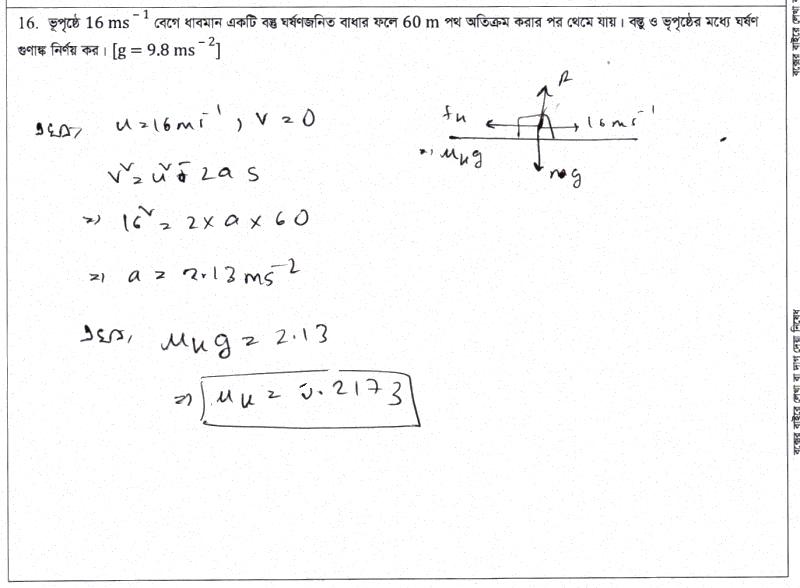 16. ভূপৃষ্ঠে 16 ms⁻¹ বেগে ধাবমান একটি বস্তু ঘর্ষণজনিত বাধার ফলে 60 m পথ অতিক্রম করার পর থেমে যায়। বস্তু ও ভূপৃষ্ঠের মধ্যে ঘর্ষণ
গুণাঙ্ক নির্ণয় কর। [g = 9.8 ms⁻²]
R
fₖ
16 ms⁻¹
=> μₖg
mg
এখন, u = 16 ms⁻¹, v = 0
v² = u² - 2as
=> 16² = 2 × a × 60
=> a = 2.13 ms⁻²
এখন, μₖg = 2.13
=> μₖ = 0.2173
বক্সের বাইরে লেখা বা দাগ দেয়া নিষেধ
বক্সের বাইরে লেখা